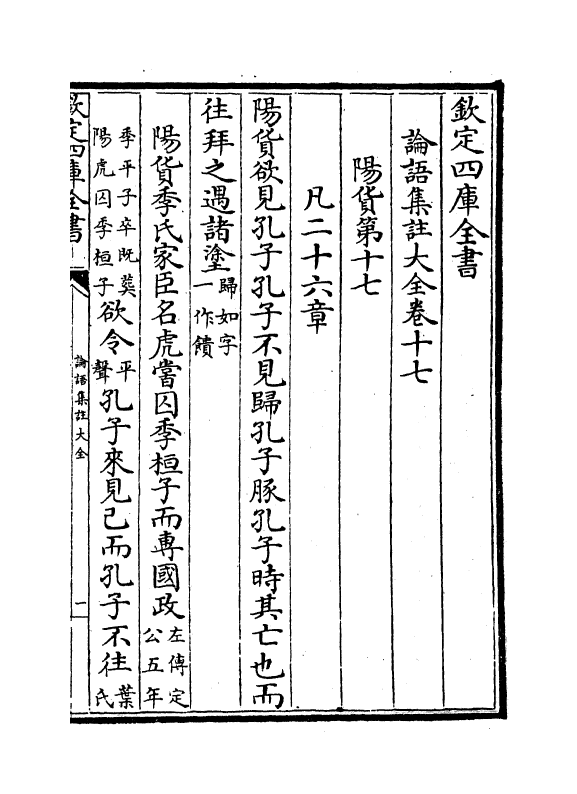 欽定四庫全書
論語集註大全卷十七
陽貨第十七
凡二十六章
陽貨欲見孔子孔子不見歸孔子豚孔子時其亡也而
往拜之遇諸塗歸如字一作饋
陽貨季氏家臣名虎嘗囚季桓子而專國政左傳定公五年
季平子卒既葬陽虎囚季桓子欲令平聲孔子來見己而孔子不往葉氏
欽定四庫全書
論語集註大全
一